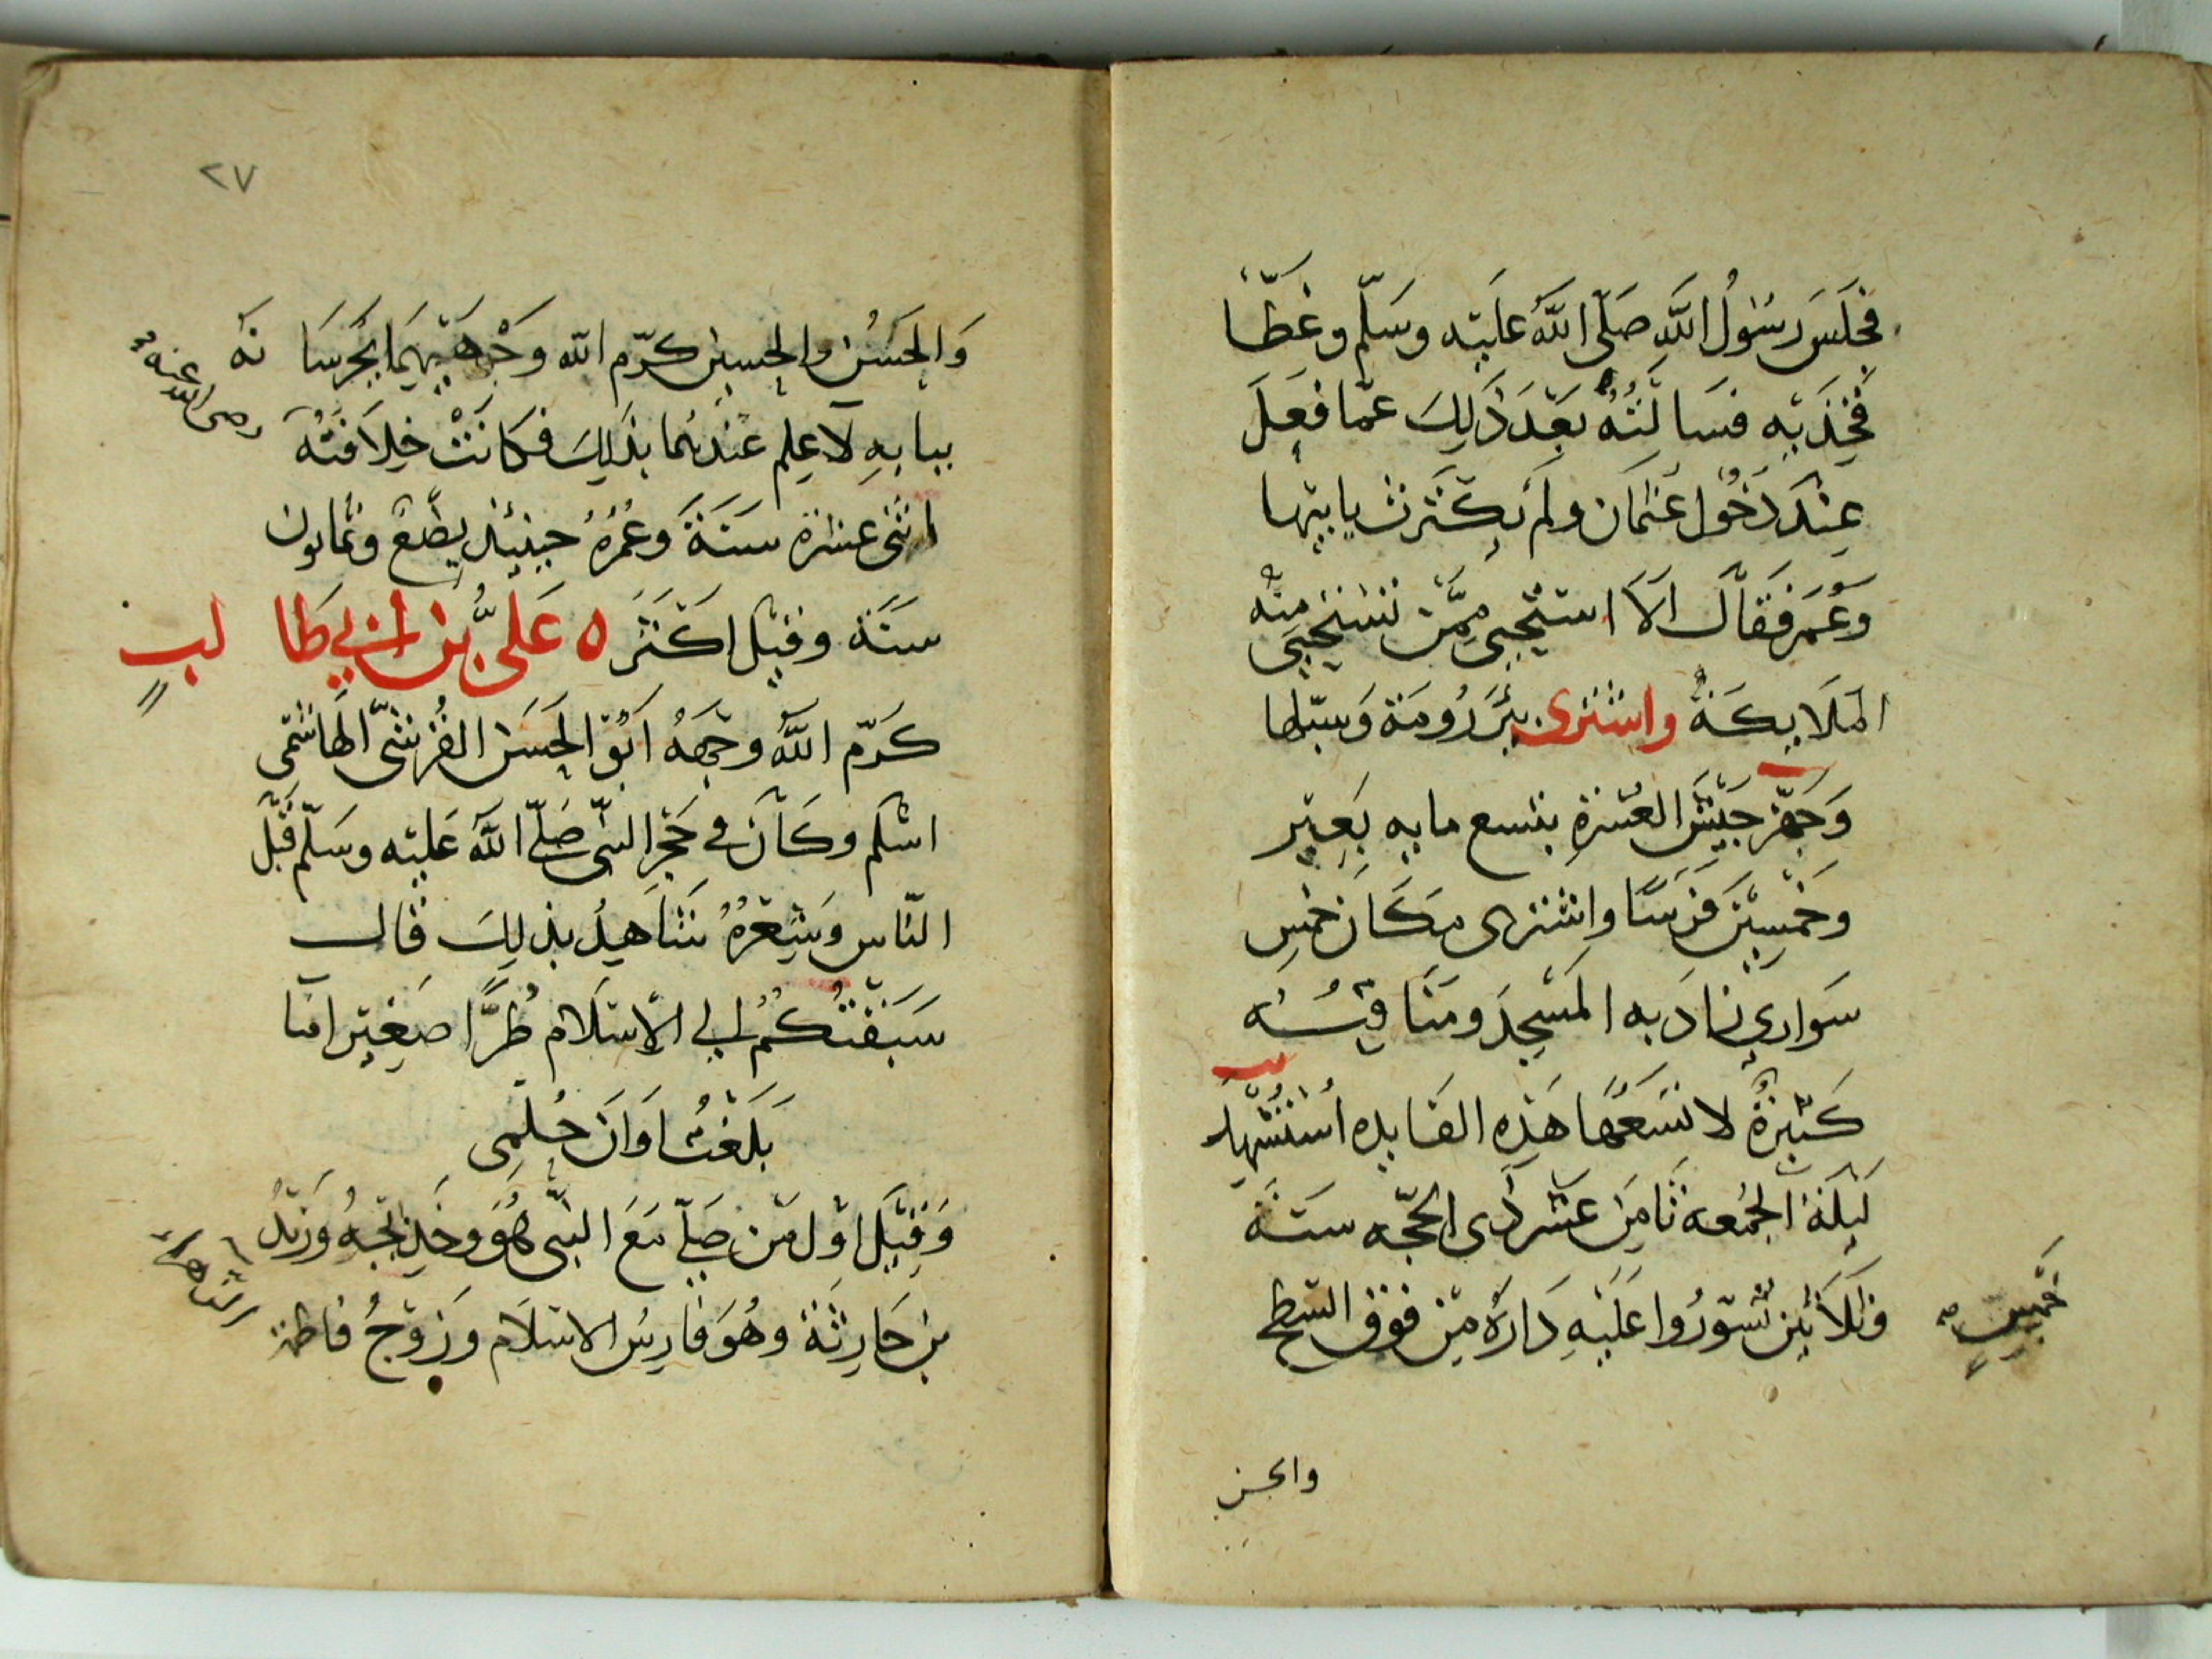 فجَلَسَ رسُولُ اللَّهِ صَلّى اللَّهُ عليْه وسَلّم وغطّا
فَخِذَيْهِ فسَالَتْهُ بَعْدَ ذَلِكَ عمّا فعَلَ
عِنْدَ دَخُول عُثمَان ولَم يكْتَرث بابيْها
وَعُمَر فَقَالَ الَا استَحْيي مِمَّنْ تسْتَحْيي منْه
المَلَايكَةُ واشترى بئرَ رُومَة وَسبّلها
وَجَهّز جَيْشَ العُسْرَةِ بتسع مايه بَعِيْر
وخمسِيْنَ فرَسًا واشترى مكَان خمس
سَواري زادَ به المسْجِدَ ومنَاقبُه
كَثيرَةٌ لا تسَعُهَا هَذِه الفَايده اسْتُشْهِد
ليْلَة الجُمعه ثَامِنَ عَشَر ذى الحجّه سَنَة
خمسٍ
وثلَاثيْن تسَوّرُوا عَلَيْهِ دَارَهُ مِنْ فوق السّطح
والحسن
٢٧
وَالحَسَنُ والحسين كرّم الله وَجْهَيْهِمَا يحرسَانه
رضى الله عنه
ببابهِ لَا علم عندَهُما بذَلِكَ فكَانَتْ خِلَافَتُه
اثنى عشرَة سَنَةً وعُمُرُهُ حيْنَئذٍ بِضْعٌ وثمَانون
سنَة وقيْل اكْثَرَ ٥ عَليُّ بن أبي طَالب
كَرّم اللَّهُ وجْهَهُ ابُو الحَسَن القُرشىّ الهَاشمى
اسْلَم وكَانَ في حَجْرِ النبّى صَلّى اللَّهُ عَليْه وسَلّم قَبْل
النّاس وَشِعْرُهُ شَاهِدٌ بذلِكَ قال
سَبَقْتُكُمُ الى الإسْلَام طُرًّا صَغِيْرا مَا
بَلَغْتُ اوَانَ حُلمِى
وَقيْلَ اوّل مَنْ صَلّى مَعَ النبّى هُوَ وخَدِيْجَهُ وَزَيْدُ
بن حَارِثَة وهُوَ فَارِسُ الاسْلَام وَزَوْجُ فاطمة